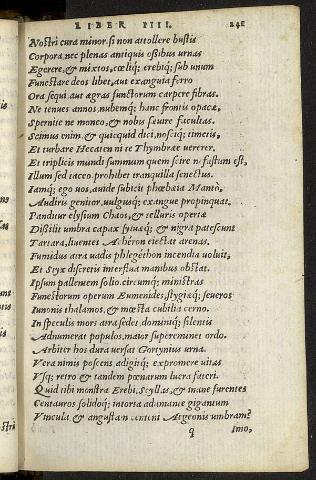 LIBER IIII. 241
Nostri cura minor. si non attollere bustis
Corpora, nec plenas antiquis ossibus urnas
Egerere, & mixtos, cœliq; erebiq; sub unum
Funestare deos libet, aut exanguia ferro
Ora sequi. aut ægras functorum carpere fibras.
Ne tenues annos, nubemq; hanc frontis opacæ,
Spernite ne moneo, & nobis sæuire facultas.
Scimus enim. & quicquid dici, nosciq; timetis,
Et turbare Hecaten ni te Thymbræe uererer.
Et triplicis mundi summum quem scire nefastum est,
Illum sed taceo. prohibet tranquilla senectus.
Iamq; ego uos, auide subicit phœbæia Mantò,
Audiris genitor, uulgusq; exangue propinquat.
Panditur elysium Chaos, & telluris opertæ
Dissilit umbra capax syluæq; & nigra patescunt
Tartara, liuentes Acheron eiectat arenas.
Fumidus atra uadis phlegethon incendia uoluit,
Et Styx discretis interflua manibus obstat.
Ipsum pallenem solio. circumq; ministras
Funestorum operum Eumenides, stygiæq; seueros
Iunonis thalamos, & mœsta cubilia cerno.
In speculis mors atra sedet, dominiq; silentis
Adnumerat populos. maior superemines ordo.
Arbiter hos dura uersat Gortynius urna.
Vera nimis poscens, adigitq; expromere uitas
Vsq; retro & tandem pœnarum lucra fateri.
Quid tibi monstra Erebi, Scyllas, & inane furentes
Centauros solidoq; intorta adamante gigantum
Vincula & angustam centeni Aegeonis umbram?
q Imo,